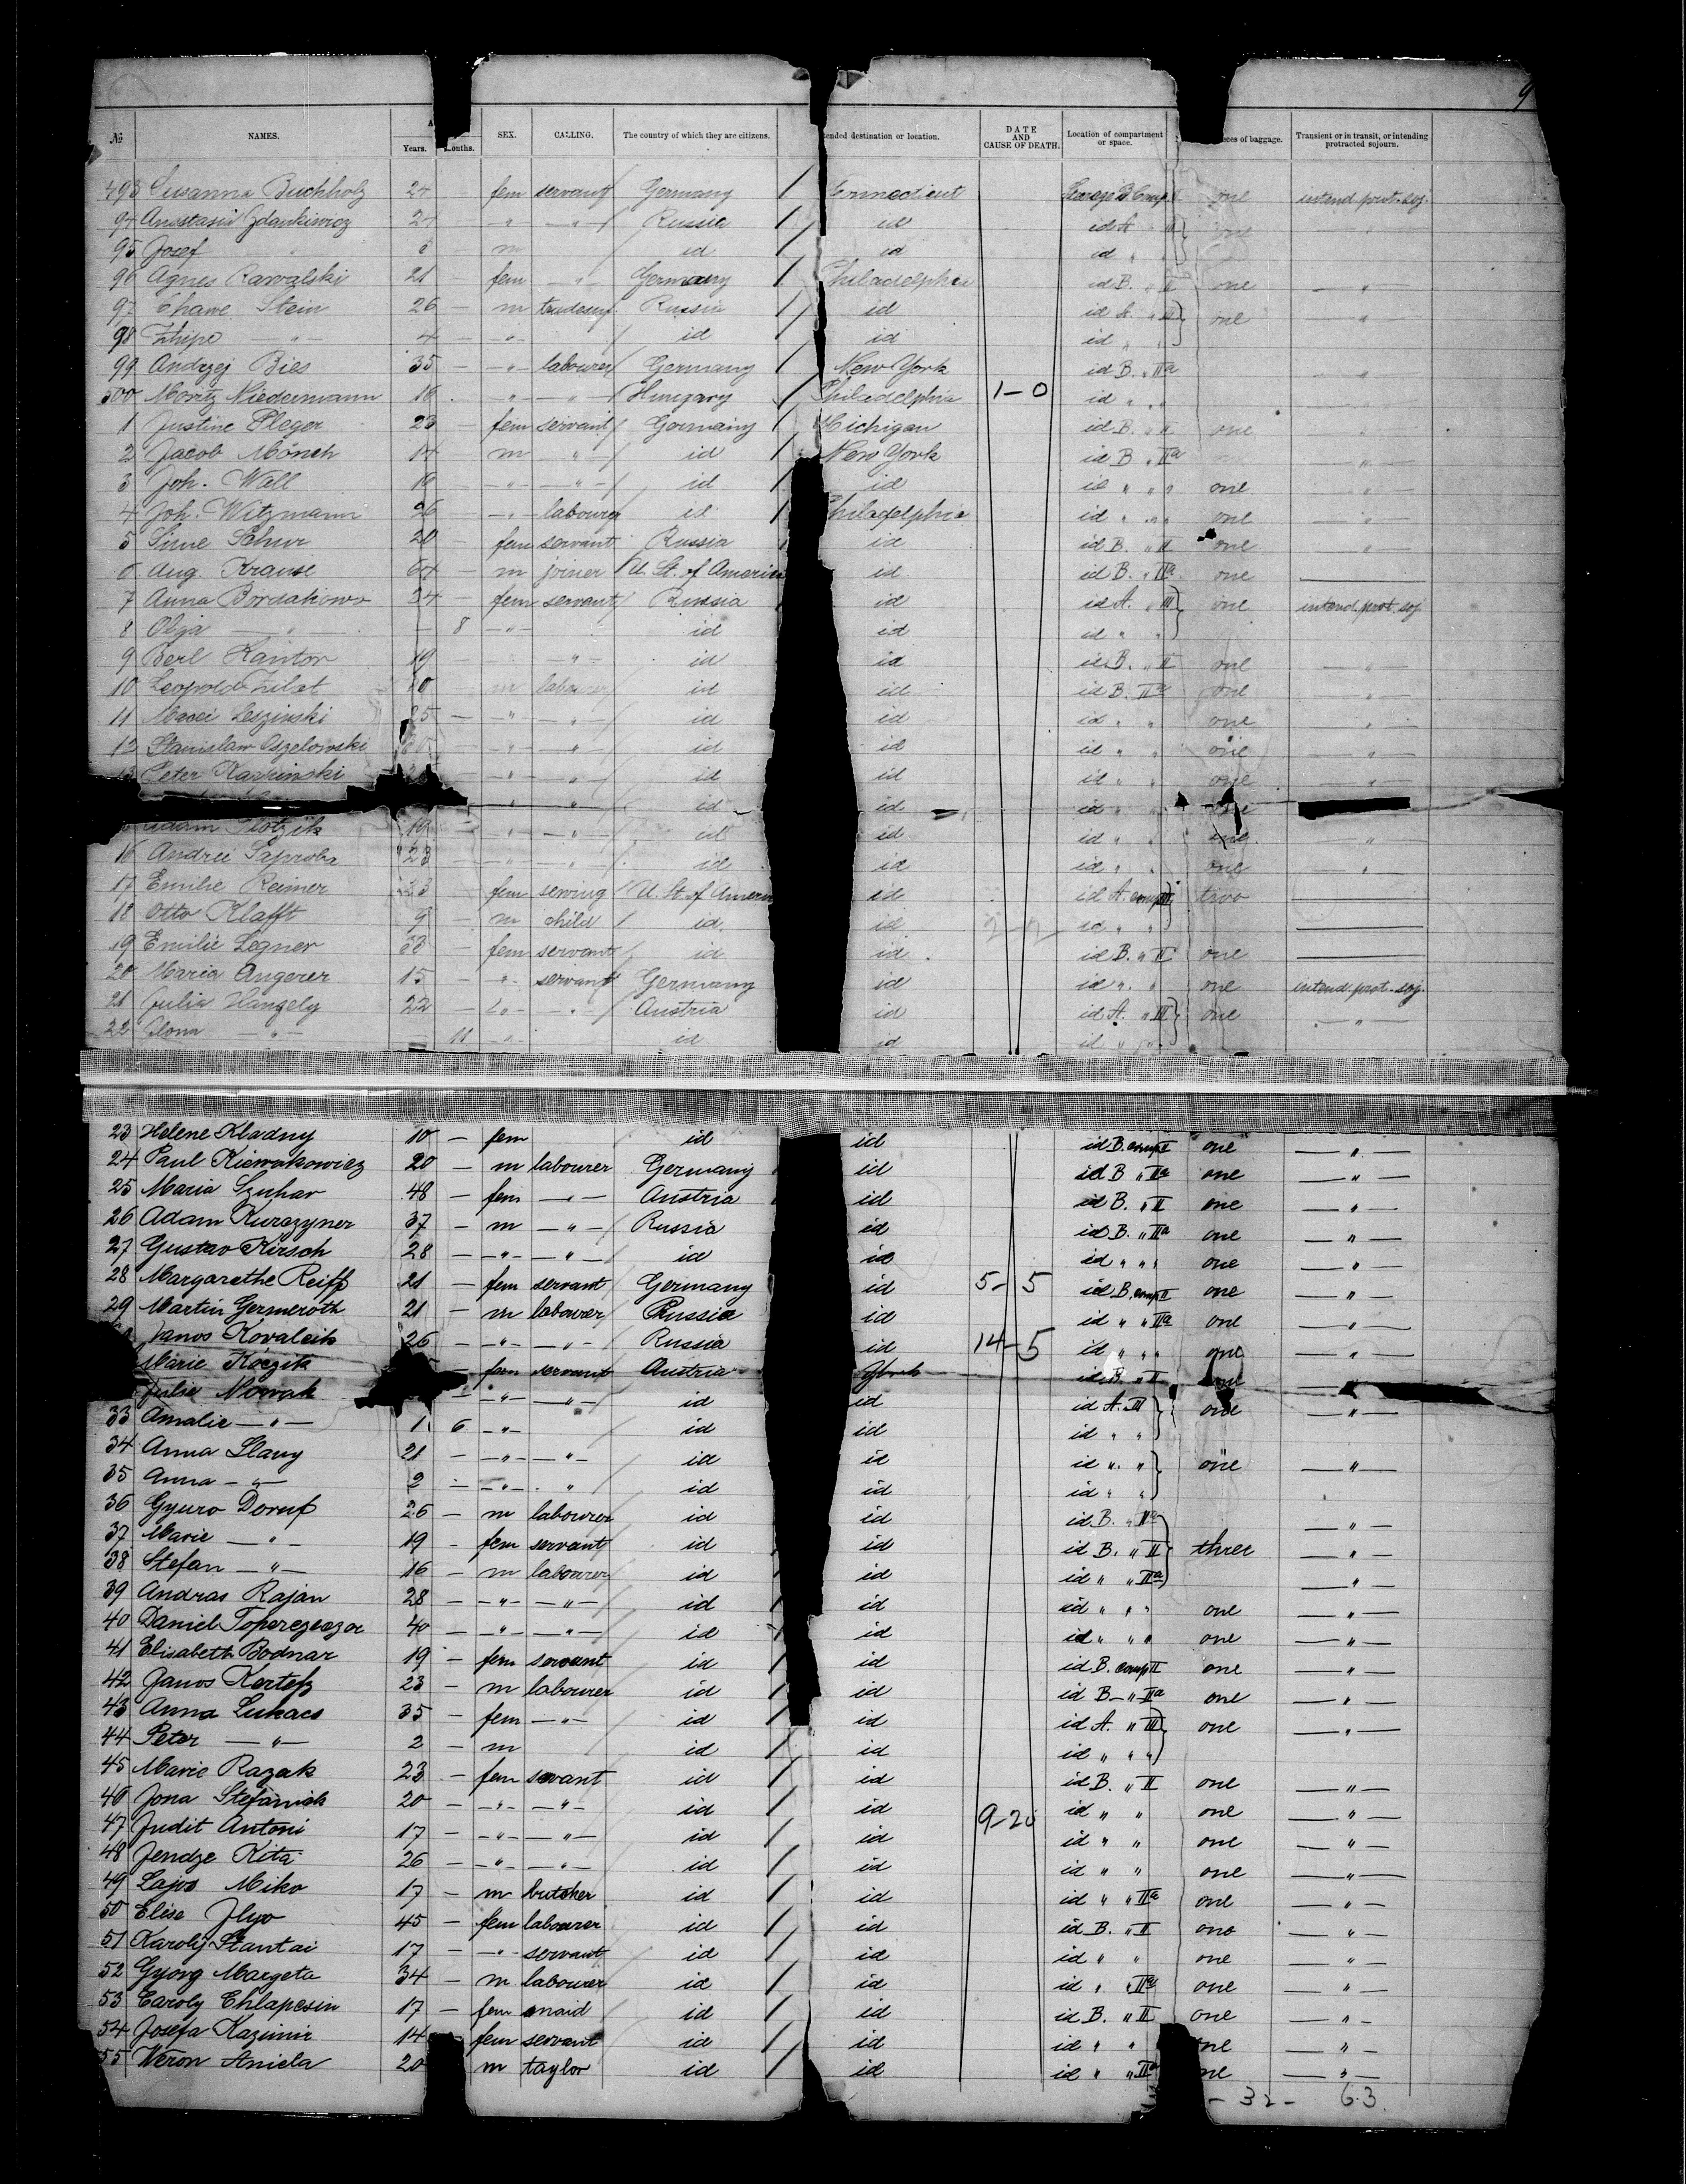 9
№ NAMES. Years. Months. SEX. CALLING. The country of which they are citizens. ended destination or location. DATE AND CAUSE OF DEATH. Location of compartment or space. ces of baggage. Transient or in transit, or intending protracted sojourn.
493 Susanna Buchholz 24 — fem servant Germany / Connecticut one intend prot. soj.
94 Anastasia Zdankiewicz 24 — " — " — Russia / id id A " one
95 Josef — " — m id / id id " "
96 Agnes Kawalski 21 — fem — " — Germany / Philadelphia id B. " II one — " —
97 Chawe Stein 26 — m Russia / id id A. " III one — " —
98 — " — 4 — — " — id / id id " "
99 Andrzej Bies 35 — — " — labourer Germany / New York id B. " IIa
500 Moritz Niedermann 16 — " — — " — Hungary / Philadelphia 1–0 id " "
1 Justine Pleger 23 — fem servant Germany / Michigan id B. " II one "
2 Jacob Mönch 14 — m — " — id / New York id B " IIa — " —
3 Joh. Wall 19 — — " — — " — id / id id " " " one — " —
4 Joh. Witzmann 26 — — " — labourer id / Philadelphia id " " " one — " —
5 Sime Schur 20 — fem servant Russia id id B. " II one — " —
6 Aug. Krause 64 — m joiner U. St. of America id id B. " IIa one ———
7 Anna Bordakowa 34 — fem servant Russia id id A. " III one intend. prot. soj
8 Olga — " — — 8 — " — id id id " "
9 Berl Kantor 19 — — " — id id id B. " II one — " —
10 Leopold Zilat 20 — m labourer id id id B. IIa one — " —
11 Macei Leszinski 25 — — " — — " — id id id " " one "
12 Stanislaw Oszelowski — " — — " — id id id " " one — " —
13 Peter Karwinski — " — — " — id id id " " one — " —
" " id id id " " one
Adam Plotzik 19 — — " — — " — id id id " " one — " —
16 Andrei 23 — — " — — " — id id id " " one "
17 Emilie Reimer 23 fem sewing U. St. of America id id A. comp III two ———
18 Otto Klafft 9 — m child id. id id " " ———
19 Emilie Legner 33 — fem servant id id id B. " II one ———
20 Maria Angerer 15 — — " — servant Germany id id " " one intend. prot. soj.
21 Julia Hangely 22 — — " — — " — Austria id id A. " III one — " —
22 Ilona — " — — 11 — " — id id id " "
23 Helene Kladny 10 — fem id id id B. comp II one — " —
24 Paul Kiewakowicz 20 — m labourer Germany id id B " IIa one — " —
25 Maria Szuhar 48 — fem — " — Austria id id B. " II one — " —
26 Adam Kurczyner 37 — m — " — Russia id id B. " IIa one — " —
27 Gustav Kirsch 28 — — " — — " — id id id " " " one — " —
28 Margarethe Reiff 21 — fem servant Germany id 5–5 id B. comp II one — " —
29 Martin Germeroth 21 — m labourer Russia id id " " IIa one — " —
Janos Kovalcik 26 — — " — — " — Russia id 14–5 id " " " one — " —
Marie Koczik fem servant Austria id B. " II one — " —
Julie Nowak — — " — — " — id id id A. " III one — " —
33 Amalie — " — 1 6 — " — id id id " "
34 Anna Slany 21 — — " — — " — id id id " " one — " —
35 Anna — " — 2 — — " — " id id id " "
36 Gyuro Doruf 26 — m labourer id id id B. " IIa — " —
37 Marie — " — 19 — fem servant id id id B. " II three — " —
38 Stefan — " — 16 — m labourer id id id " " IIa — " —
39 Andras Rajan 28 — — " — — " — id id id " " " one — " —
40 Daniel 40 — — " — — " — id id id " " " one — " —
41 Elisabeth Bodnar 19 — fem servant id id id B. comp II one — " —
42 Janos Kertefz 23 — m labourer id id id B — " — IIa one — " —
43 Anna Lukacs 35 — fem — " — id / id id A. " III one — " —
44 Peter — " — 2 — m id / id id " " "
45 Marie Razak 23 — fem servant id / id id B. " II one — " —
46 Jona Stefaniak 20 — — " — — " — id / id 9–20 id " " one — " —
47 Judit Antoni 17 — — " — — " — id / id id " " one — " —
48 Jendze Kita 26 — — " — — " — id / id id " " one — " —
49 Lajos Miko 17 — m butcher id / id id " " IIa one — " —
50 Elise Jlyo 45 — fem labourer id / id id B. " II one — " —
51 Karoly Stantai 17 — — " — servant id / id id " " one — " —
52 Györg Margeta 34 — m labourer id / id id " " IIa one — " —
53 Caroly Chlapcsin 17 — fem maid id / id id B. " II one — " —
54 Josefa Kazimir 14 fem servant id / id id " " ne — " —
55 Veron Aniela 20 m taylor id / id id " " IIa ne — " —
– 32 – 63.